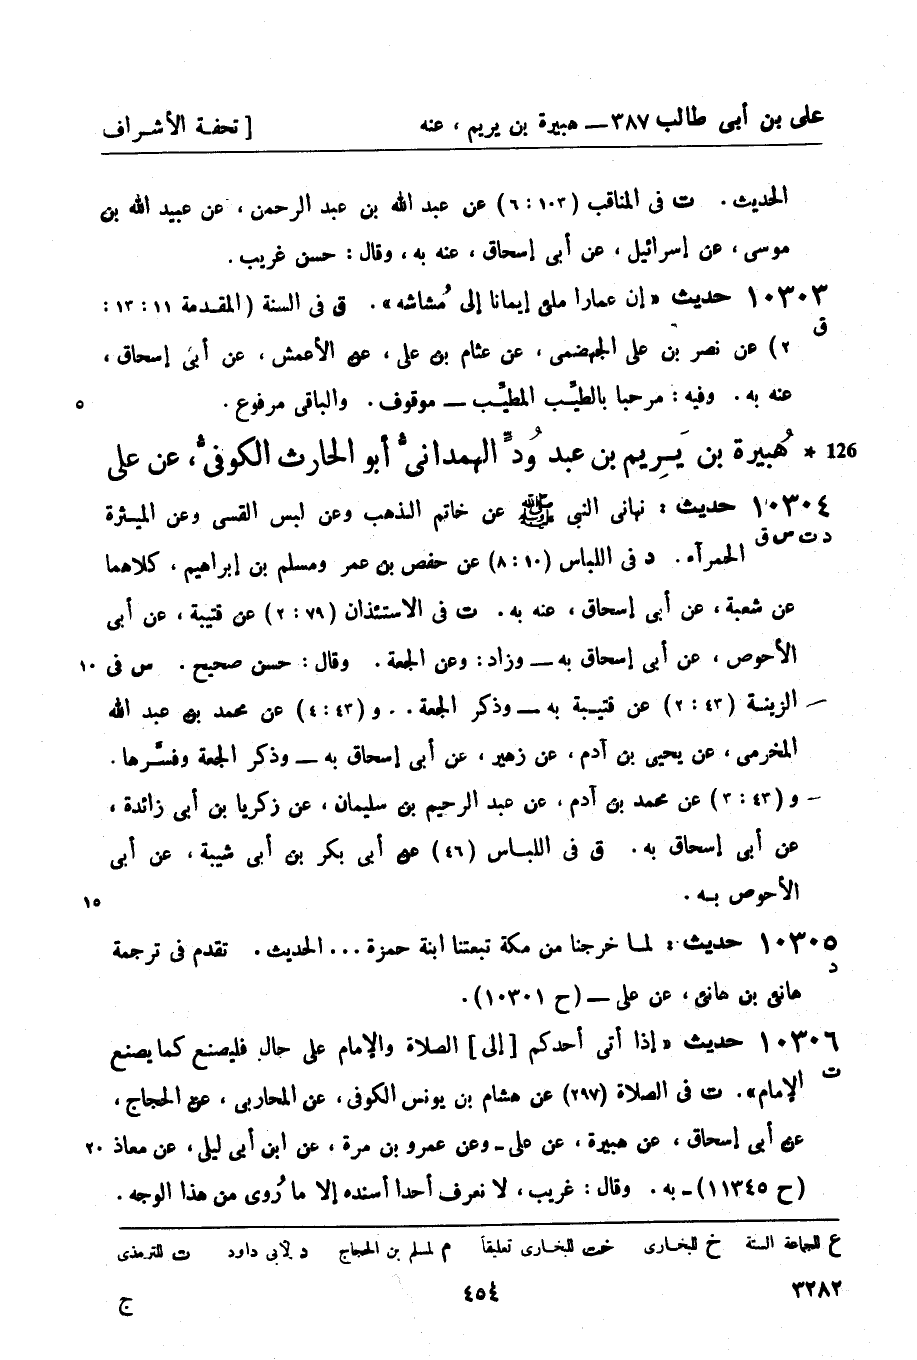 على بن أبى طالب ٣٨٧ — هبيرة بن يريم ، عنه [ تحفة الأشراف
الحديث . ت فى المناقب (١٠٣ : ٦) عن عبد الله بن عبد الرحمن ، عن عبيد الله بن
موسى ، عن إسرائيل ، عن أبى إسحاق ، عنه به ، وقال : حسن غريب .
١٠٣٠٣ حديث « إن عمارا ملئ إيمانا إلى مُشاشه » . ق فى السنة (المقدمة ١١ : ١٣ :
ق
٢) عن نصر بن على الجهضمى ، عن عثام بن على ، عن الأعمش ، عن أبى إسحاق ،
عنه به . وفيه : مرحبا بالطيِّب المطيِّب — موقوف . والباقى مرفوع . ٥
126 * هُبيرة بن يَرِيم بن عبد وُدٍّ الهمدانىُّ أبو الحارث الكوفىُّ ، عن على
١٠٣٠٤ حديث : نهانى النبى ﷺ عن خاتم الذهب وعن لبس القسى وعن الميثرة
د ت س ق
الحمرآء . د فى اللباس (١٠ : ٨) عن حفص بن عمر ومسلم بن إبراهيم ، كلاهما
عن شعبة ، عن أبى إسحاق ، عنه به . ت فى الاستئذان (٧٩ : ٢) عن قتيبة ، عن أبى
الأحوص ، عن أبى إسحاق به — وزاد : وعن الجعة . وقال : حسن صحيح . س فى ١٠
— الزينة (٤٣ : ٢) عن قتيبة به — وذكر الجعة . . و (٤٣ : ٤) عن محمد بن عبد الله
المخرمى ، عن يحيى بن آدم ، عن زهير ، عن أبى إسحاق به — وذكر الجعة وفسَّرها .
— و (٤٣ : ٣) عن محمد بن آدم ، عن عبد الرحيم بن سليمان ، عن زكريا بن أبى زائدة ،
عن أبى إسحاق به . ق فى اللباس (٤٦) عن أبى بكر بن أبى شيبة ، عن أبى
الأحوص به . ١٥
١٠٣٠٥ حديث : لما خرجنا من مكة تبعتنا ابنة حمزة ... الحديث . تقدم فى ترجمة
د
هانئ بن هانئ ، عن على — (ح ١٠٣٠١) .
١٠٣٠٦ حديث « إذا أتى أحدكم [إلى] الصلاة والإمام على حال فليصنع كما يصنع
ت
الإمام » . ت فى الصلاة (٢٩٧) عن هشام بن يونس الكوفى ، عن المحاربى ، عن الحجاج ،
عن أبى إسحاق ، عن هبيرة ، عن على - وعن عمرو بن مرة ، عن ابن أبى ليلى ، عن معاذ ٢٠
(ح ١١٣٤٥) - به . وقال : غريب ، لا نعرف أحدا أسنده إلا ما رُوى من هذا الوجه .
ع للجماعة الستة خ للبخارى خت للبخارى تعليقاً م لمسلم بن الحجاج د لأبى داود ت للترمذى
٣٢٨٢ ٤٥٤ ج